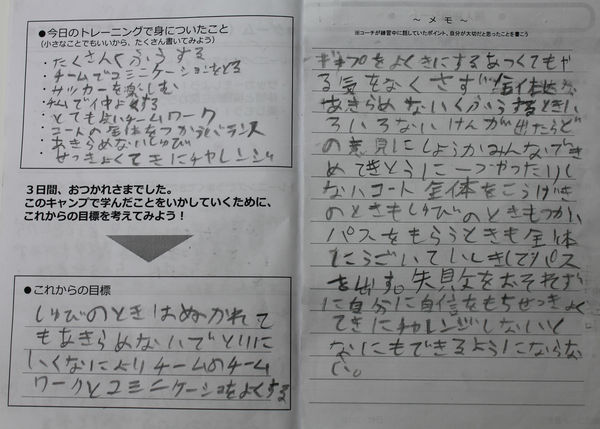 ●今日のトレーニングで身についたこと
(小さなことでもいいから、たくさん書いてみよう)
・たくさんくふうする
・チームでコミニケーションをとる
・サッカーを楽しむ
・チームで仲よくする
・とても良いチームワーク
・コートの全体をつかうバランス
・あきらめないしゅび
・せっきょくてきにチャレンジ
3日間、おつかれさまでした。
このキャンプで学んだことをいかしていくために、
これからの目標を考えてみよう!
●これからの目標
しゅびのときはぬかれて
もあきらめないでとりに
いくなによりチームのチーム
ワークとコミニケーションをよくする
~ メモ ~
※コーチが練習中に話していたポイント、自分が大切だと思ったことを書こう
をよくきにするあつくてもや
る気をなくさず 全体が
あきらめないくふうするときい
ろいろないけんが出たらど
の意見にしようかみんなでき
めてきとうに一つやったりし
ないコート全体をこうげき
のときもしゅびのときもつかい
パスをもらうときも全体
にうごいていしきしてパス
を出す。失敗をおそれず
に自分に自信をもちせっきょく
てきにチャレンジしないと
なにもできるようにならな
い。